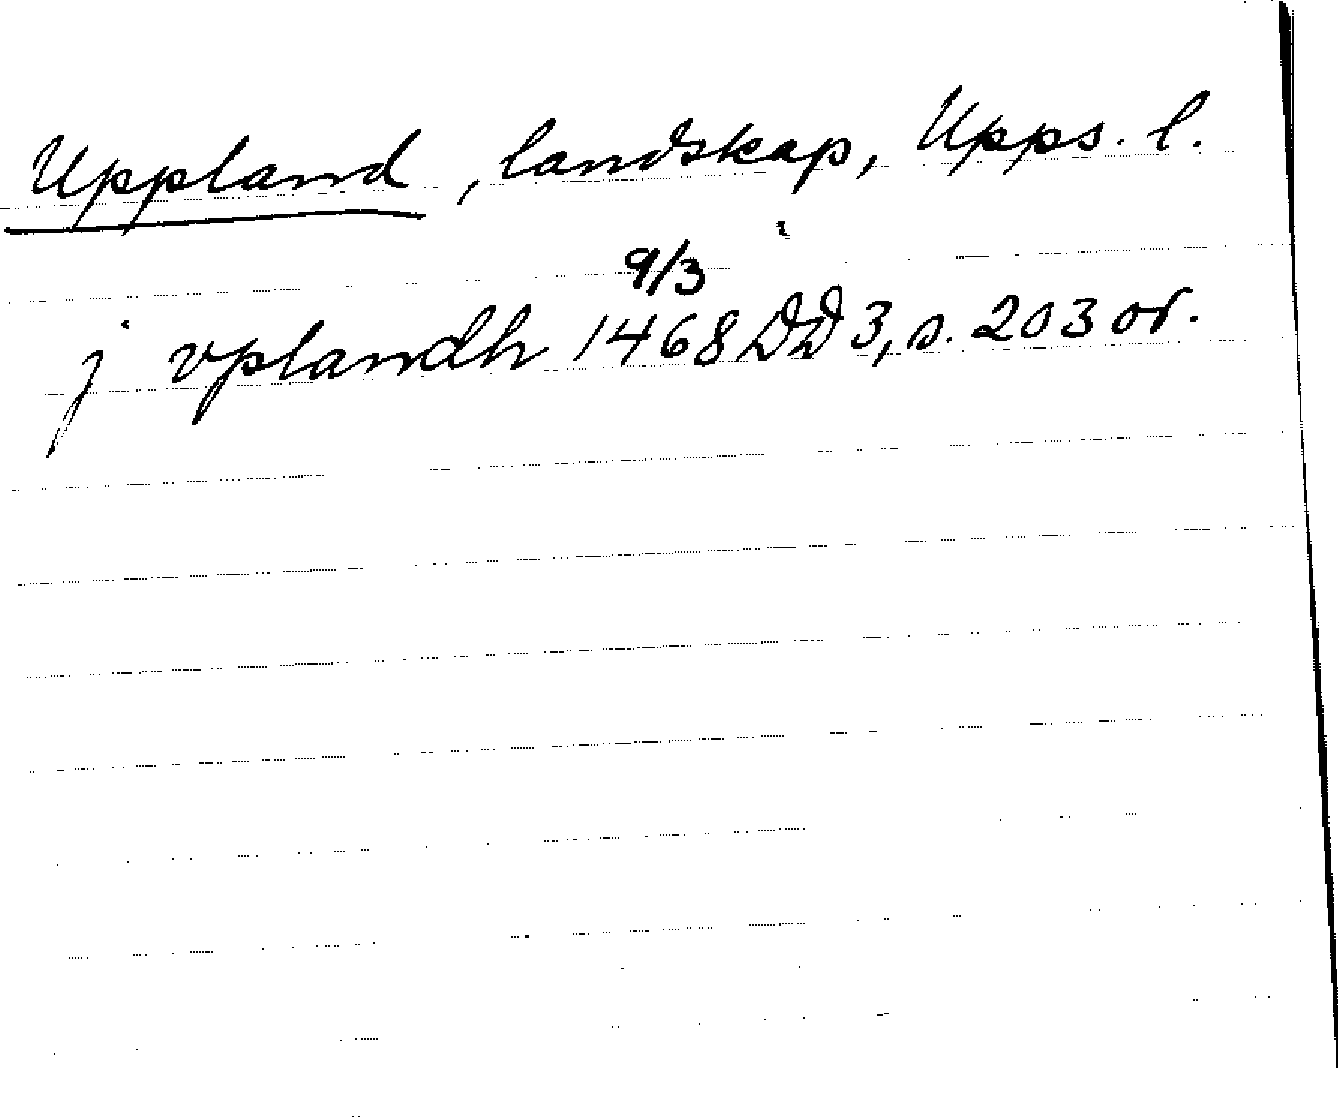 Uppland, landskap, Upps. l.
9/3
j vplandh 1468 DD 3, s. 203 or.